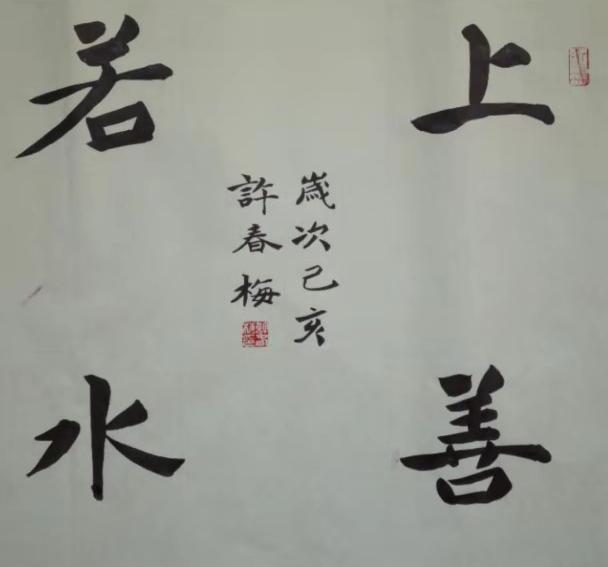 上善
若水
歲次己亥
許春梅